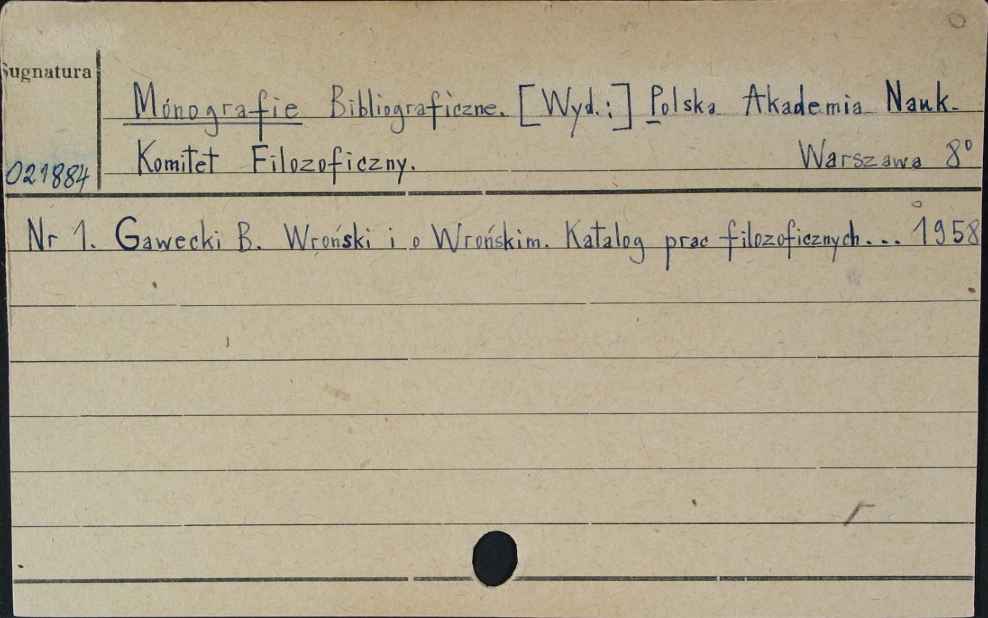 Sugnatura
Monografie Bibliograficzne. [Wyd.:] Polska Akademia Nauk.
021884 Komitet Filozoficzny. Warszawa 8°
Nr 1. Gawecki B. Wroński i o Wrońskim. Katalog prac filozoficznych... 1958